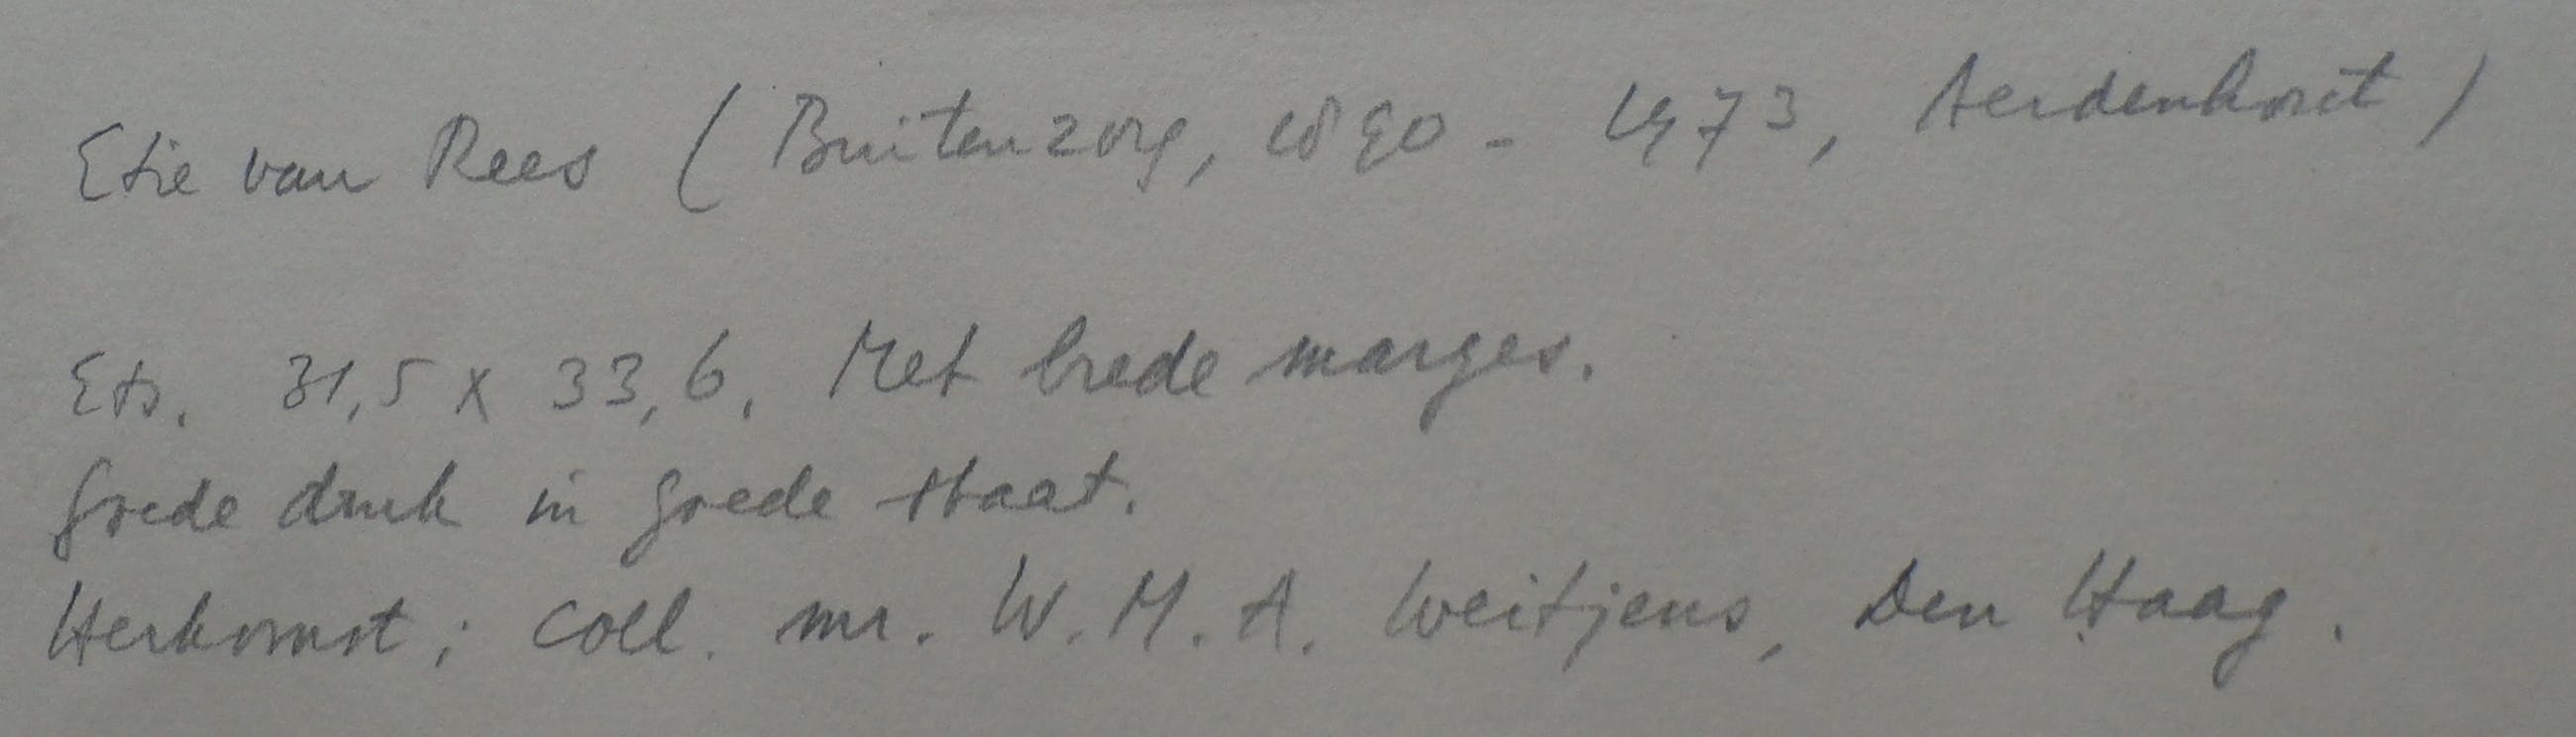 Etie van Rees (Buitenzorg, 1890 - 1973, Aerdenhout)
Ets. 31,5 x 33,6. Met brede marges.
Goede druk in goede staat.
Herkomst; coll. mr. W.M.A. Weitjens, Den Haag.